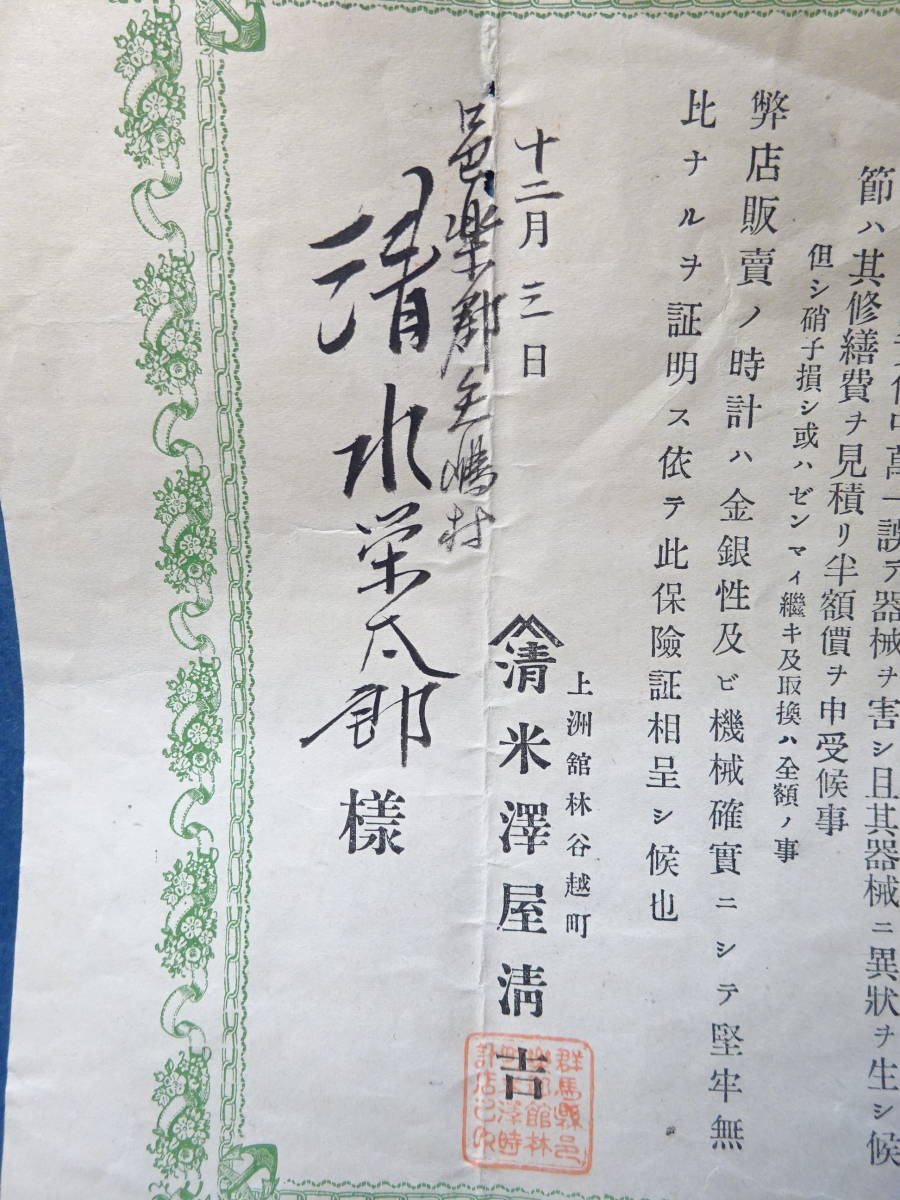 誤テ器械ヲ害シ且其器械ニ異狀ヲ生シ候
節ハ其修繕費ヲ見積リ半額價ヲ申受候事
但シ硝子損シ或ハゼンマイ繼キ及取換ハ全額ノ事
弊店販賣ノ時計ハ金銀性及ビ機械確實ニシテ堅牢無
比ナルヲ証明ス依テ此保險証相呈シ候也
十二月三日
上洲舘林谷越町
清米澤屋清吉
群馬縣邑
樂郡館林
米澤時
計店之印
邑楽郡
村
清水栄太郎様